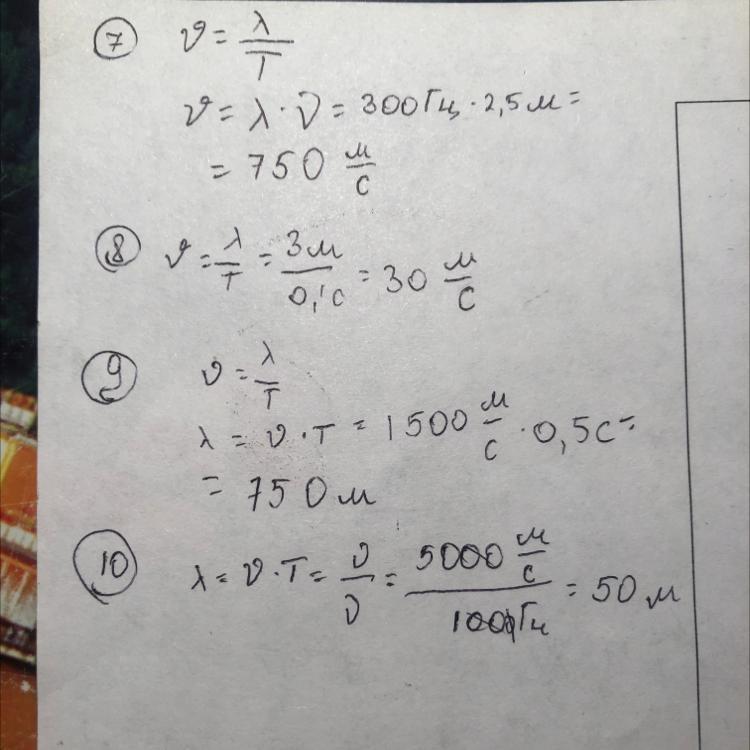 7 υ = λ/T
υ = λ · ν = 300 Гц · 2,5 м =
= 750 м/с
8 υ = λ/T = 3 м/0,1 с = 30 м/с
9 υ = λ/T
λ = υ · T = 1500 м/с · 0,5 с =
= 750 м
10 λ = υ · T = υ/ν = 5000 м/с / 100 Гц = 50 м